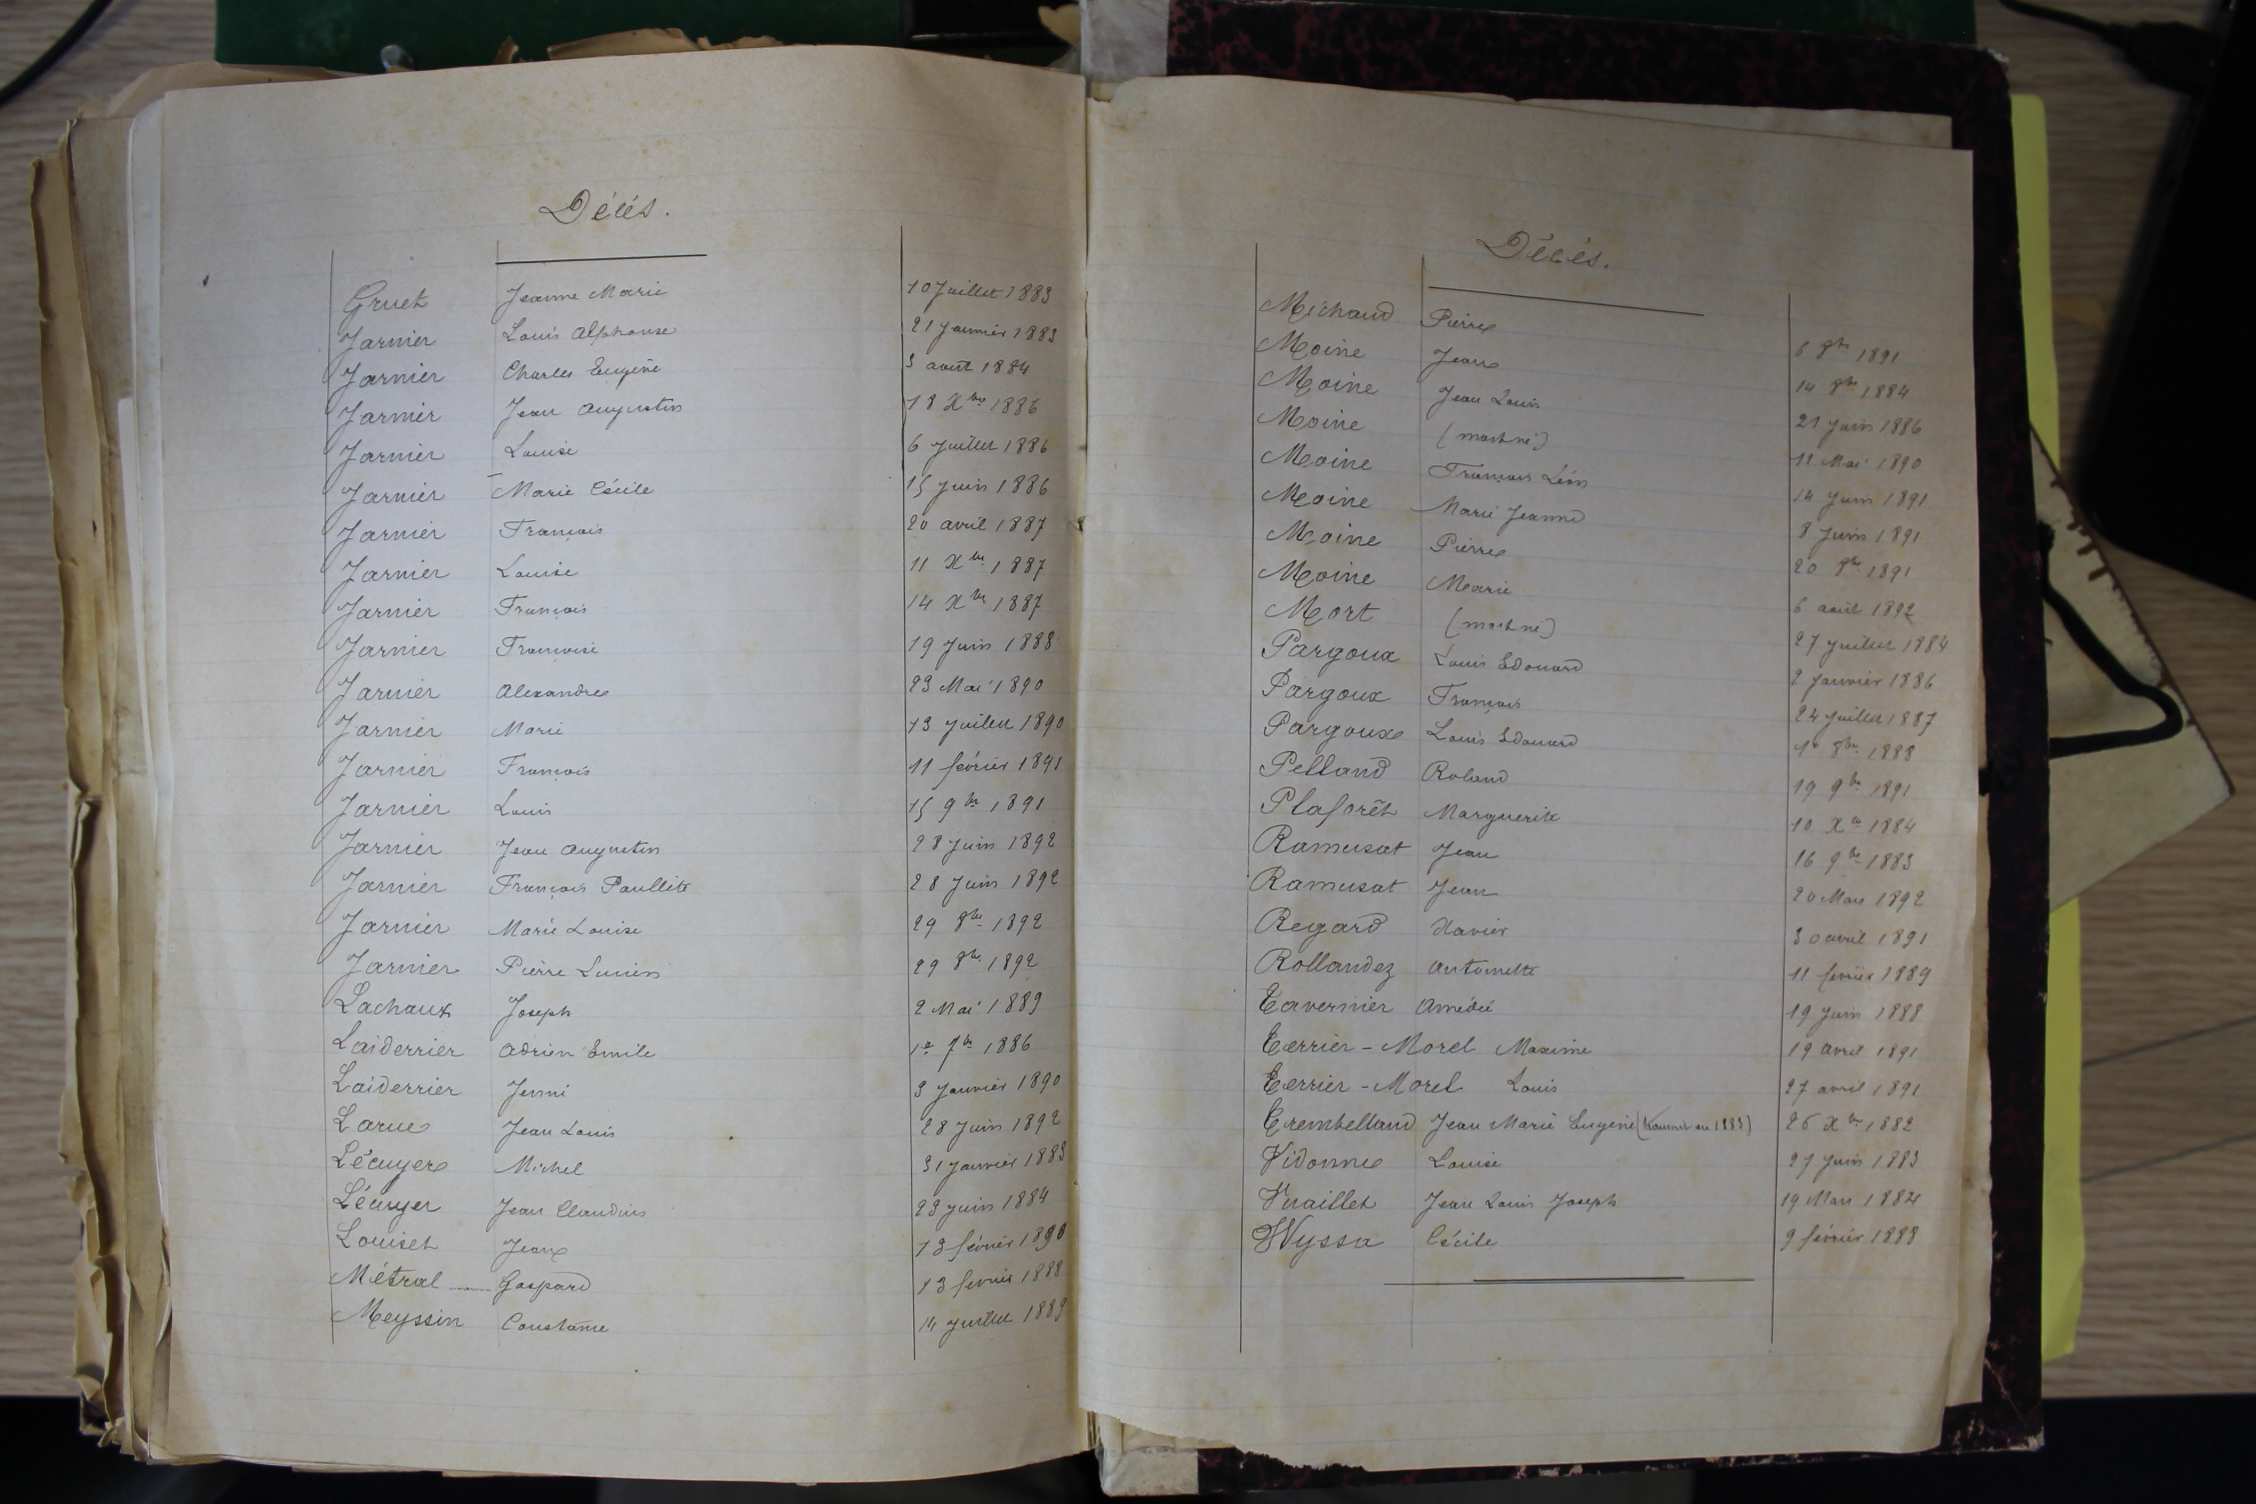 Décés.
Gruet Jeanne Marie 10 Juillet 1883
Jarnier Louis Alphonse 21 Janvier 1883
Jarnier Charles Eugène 3 août 1884
Jarnier Jean Augustin 18 Xbre 1886
Jarnier Louise 6 Juillet 1886
Jarnier Marie Cécile 15 Juin 1886
Jarnier François 20 avril 1887
Jarnier Louise 11 Xbre 1887
Jarnier François 14 Xbre 1887
Jarnier Françoise 19 Juin 1888
Jarnier Alexandre 23 Mai 1890
Jarnier Marie 13 Juillet 1890
Jarnier François 11 février 1891
Jarnier Louis 15 9bre 1891
Jarnier Jean Augustin 28 Juin 1892
Jarnier François 28 Juin 1892
Jarnier Marie Louise 29 8bre 1892
Jarnier Pierre Lucien 29 8bre 1892
Lachaux Joseph 2 Mai 1889
Laiderrier Adrien Emile 1er 7bre 1886
Laiderrier Jenni 3 Janvier 1890
Larue Jean Louis 28 Juin 1892
Lécuyer Michel 31 Janvier 1883
Lécuyer Jean Claudius 23 juin 1884
Louiset Jean 13 février 1890
Métral Gaspard 13 février 1888
Meyssin Constance 14 Juillet 1889
Décés.
Michaud Pierre 6 8bre 1891
Moine Jean 14 8bre 1884
Moine Jean Louis 21 Juin 1886
Moine (mort né) 11 Mai 1890
Moine François Léon 14 Juin 1891
Moine Marie Jeanne 8 Juin 1891
Moine Pierre 20 8bre 1891
Moine Marie 6 août 1892
Mort (mort né) 27 Juillet 1884
Pargoux Louis Edouard 2 Janvier 1886
Pargoux François 24 Juillet 1887
Pargoux Louis Edouard 8bre 1888
Pelland Roland 19 9bre 1891
Plaforêt Marguerite 10 Xbre 1884
Ramusat Jean 16 9bre 1883
Ramusat Jean 20 Mars 1892
Regard Xavier 30 avril 1891
Rollandez Antoinette 11 février 1889
Tavernier Amédée 19 Juin 1888
Terrier-Morel Maxime 19 avril 1891
Terrier-Morel Louis 27 avril 1891
Trembelland Jean Marie Eugène (transcrit en 1883) 26 Xbre 1882
Vidonne Louise 27 Juin 1883
Vuaillet Jean Louis Joseph 19 Mars 1884
Wyssa Cécile 9 février 1888